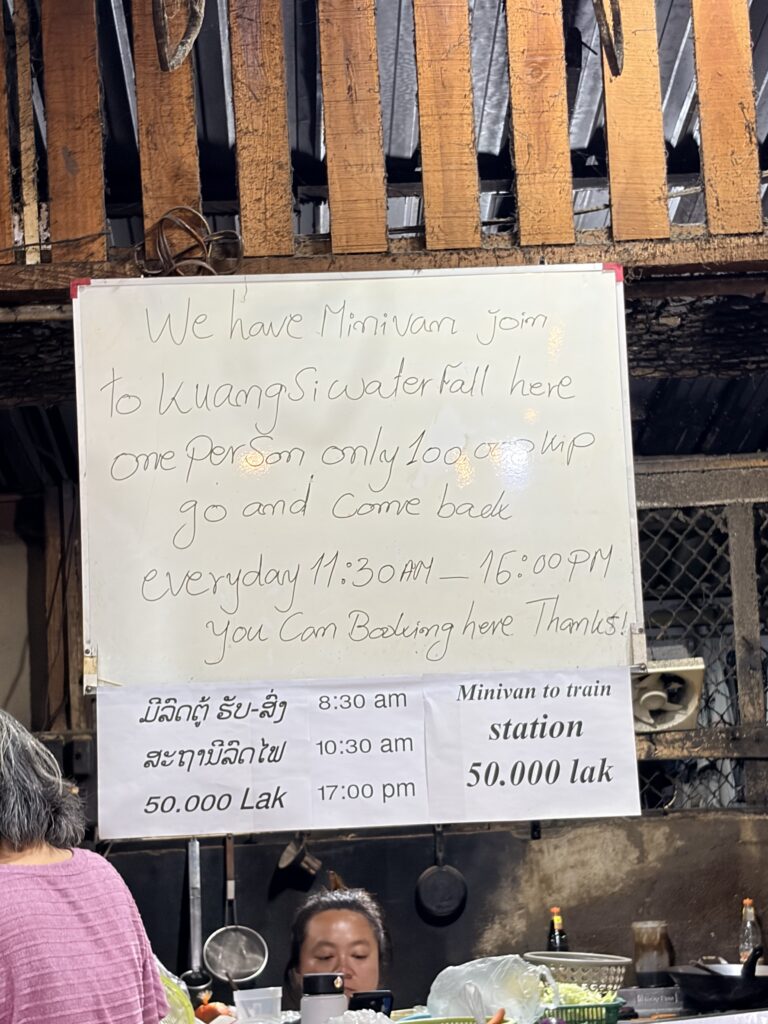 We have Minivan join
to KuangSi waterFall here
one person only 100.000 kip
go and come back
everyday 11:30 AM _ 16:00 PM
you Can Booking here Thanks!
ມີລົດຕູ້ ຮັບ-ສົ່ງ
ສະຖານີລົດໄຟ
50.000 Lak
8:30 am
10:30 am
17:00 pm
Minivan to train
station
50.000 lak